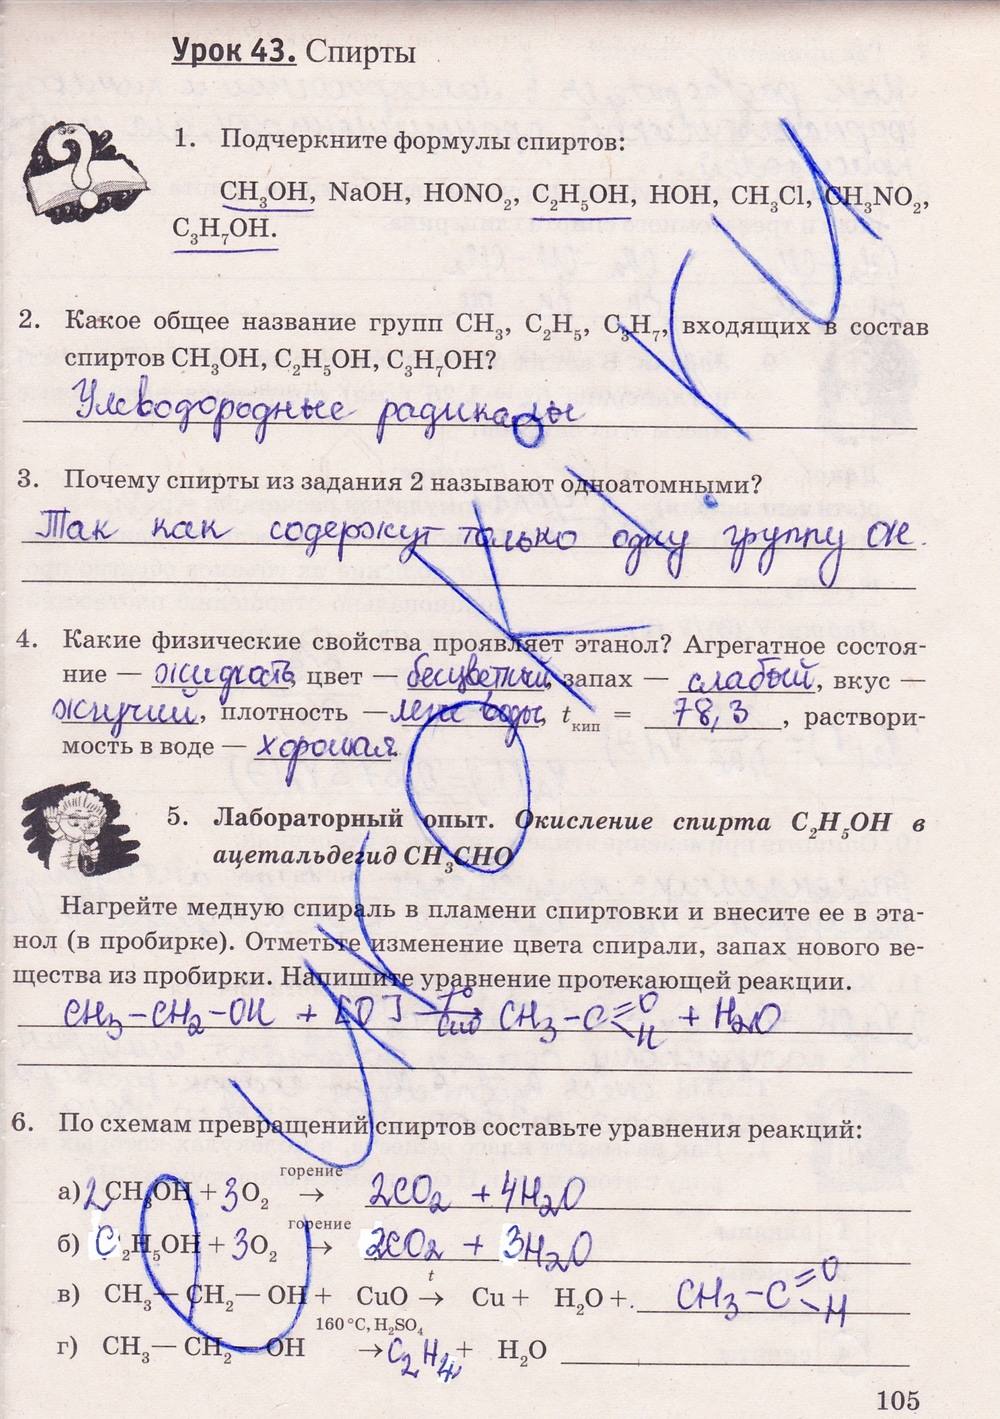 Урок 43. Спирты
1. Подчеркните формулы спиртов:
CH₃OH, NaOH, HONO₂, C₂H₅OH, HOH, CH₃Cl, CH₃NO₂,
C₃H₇OH.
2. Какое общее название групп CH₃, C₂H₅, C₃H₇, входящих в состав
спиртов CH₃OH, C₂H₅OH, C₃H₇OH?
Углеводородные радикалы
3. Почему спирты из задания 2 называют одноатомными?
Так как содержут только одну группу OH.
4. Какие физические свойства проявляет этанол? Агрегатное состоя-
ние — жидкость, цвет — бесцветный, запах — слабый, вкус —
жгучий, плотность — легче воды, tкип = 78,3, раствори-
мость в воде — хорошая
5. Лабораторный опыт. Окисление спирта C₂H₅OH в
ацетальдегид CH₃CHO
Нагрейте медную спираль в пламени спиртовки и внесите ее в эта-
нол (в пробирке). Отметьте изменение цвета спирали, запах нового ве-
щества из пробирки. Напишите уравнение протекающей реакции.
CH₃-CH₂-OH + [O] T° → CuO CH₃-C=O H + H₂O
6. По схемам превращений спиртов составьте уравнения реакций:
а) 2CH₃OH + 3O₂ горение → 2CO₂ + 4H₂O
б) C₂H₅OH + 3O₂ горение → 2CO₂ + 3H₂O
в) CH₃— CH₂— OH + CuO t → Cu + H₂O +. CH₃-C=O H
г) CH₃— CH₂— OH 160 °C, H₂SO₄ → C₂H₄ + H₂O
105